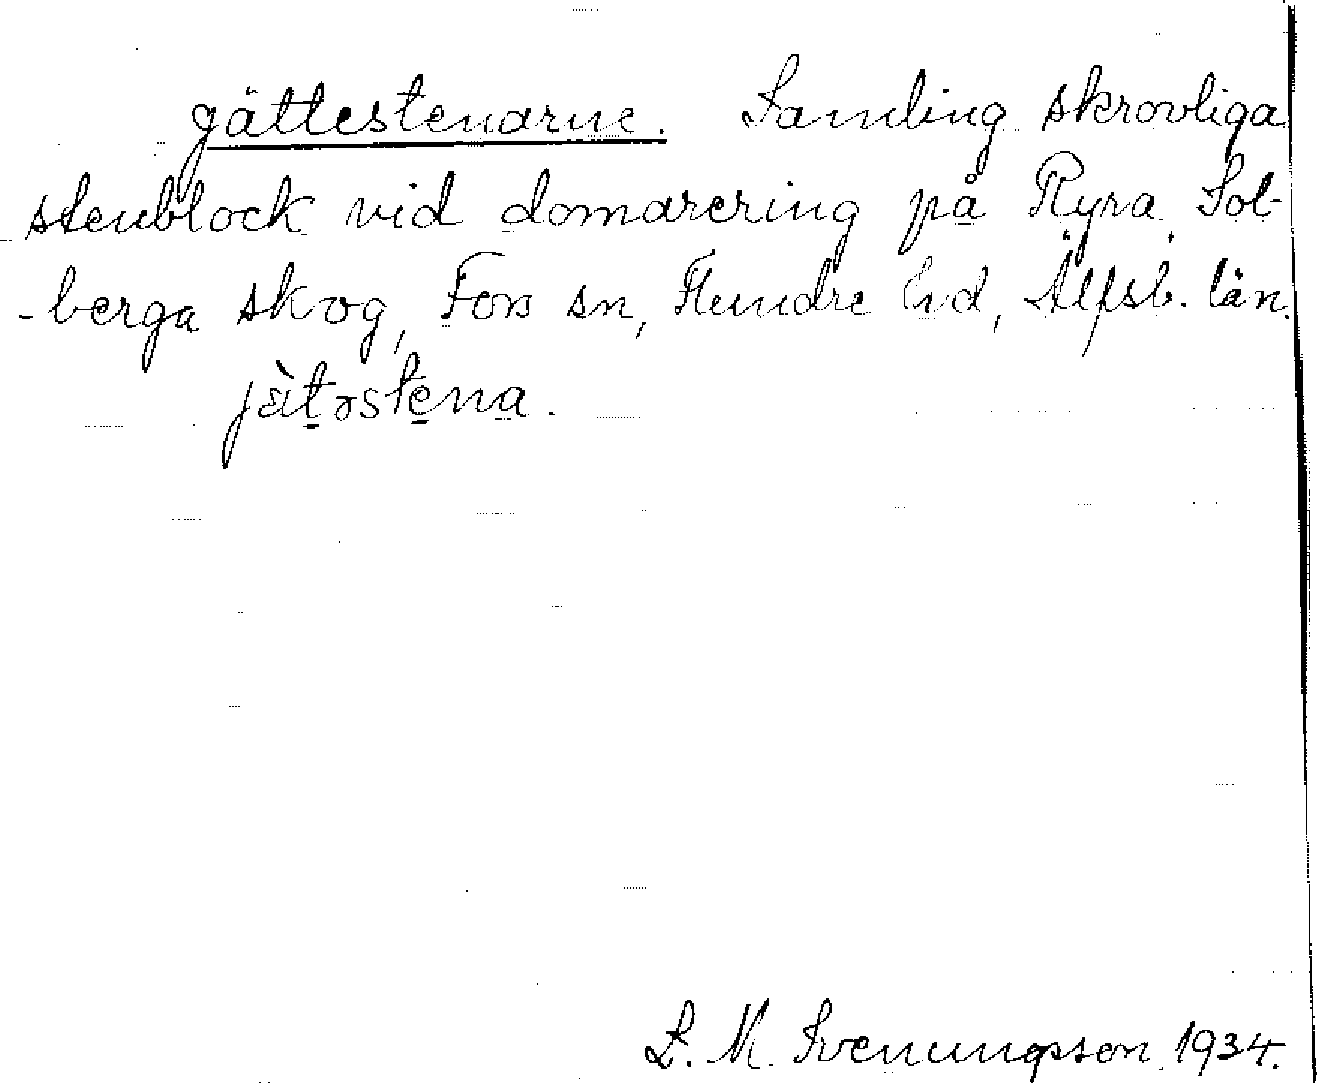 gättestenarne. Samling skrovliga
stenblock vid domarering på Ryra, Sol-
-berga skog, Fors sn, Flundre hd, Älfsb. län.
jä̀təstena.
L. M. Svenungsson 1934.